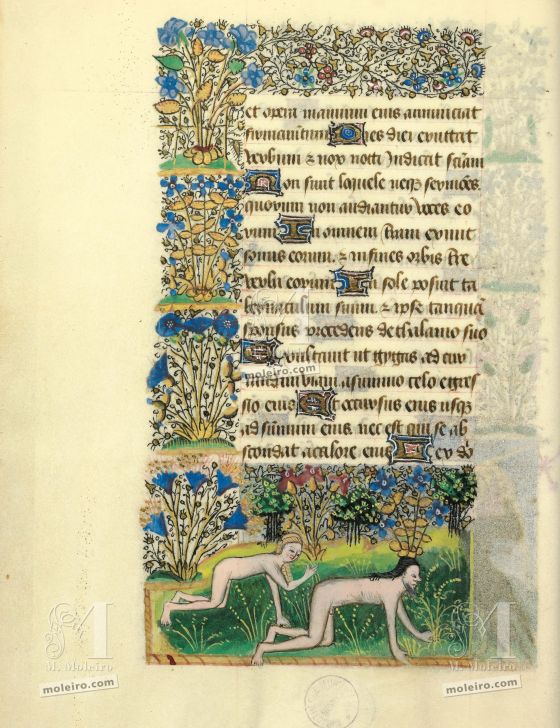 et opera manuum eius annunciat
firmamentum Dies diei eructat
verbum & nox nocti Indicat sciam
Non sunt loquele neqz sermones
quorum non audiantur Voces eo
rum In omnem terram exiuit
sonus eorum. & in fines orbis tre
verba eorum In sole posuit ta
bernaculum suum. & ipse tanquã
sponsus procedens de thalamo suo
Exultauit ut gygas ad cur
viam a summo celo egres
sio eius Et occursus eius usqz
ad sũmum eius nec est qui se ab
scondat a calore eius Lex dõ
moleiro.com
moleiro.com
moleiro.com
M M
M. Moleiro M. Moleiro
moleiro.com moleiro.com